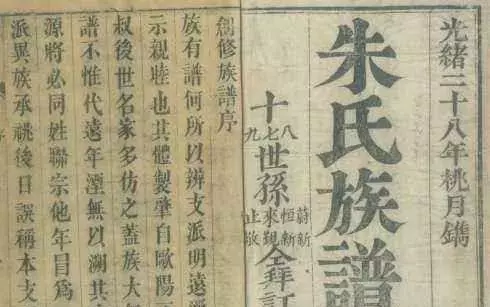 光緒二十八年桃月鐫
朱氏族譜
十八七九世孫
蔚新
恒新
來覲
止敬
仝拜訂
創修族譜序
族有譜何所以辨支派明遠
示親睦也其體製肇自歐陽
叔後世名家多仿之蓋族大
譜不惟代遠年湮無以溯其
源將必同姓聯宗他年冒為
派異族承祧後日誤稱本支